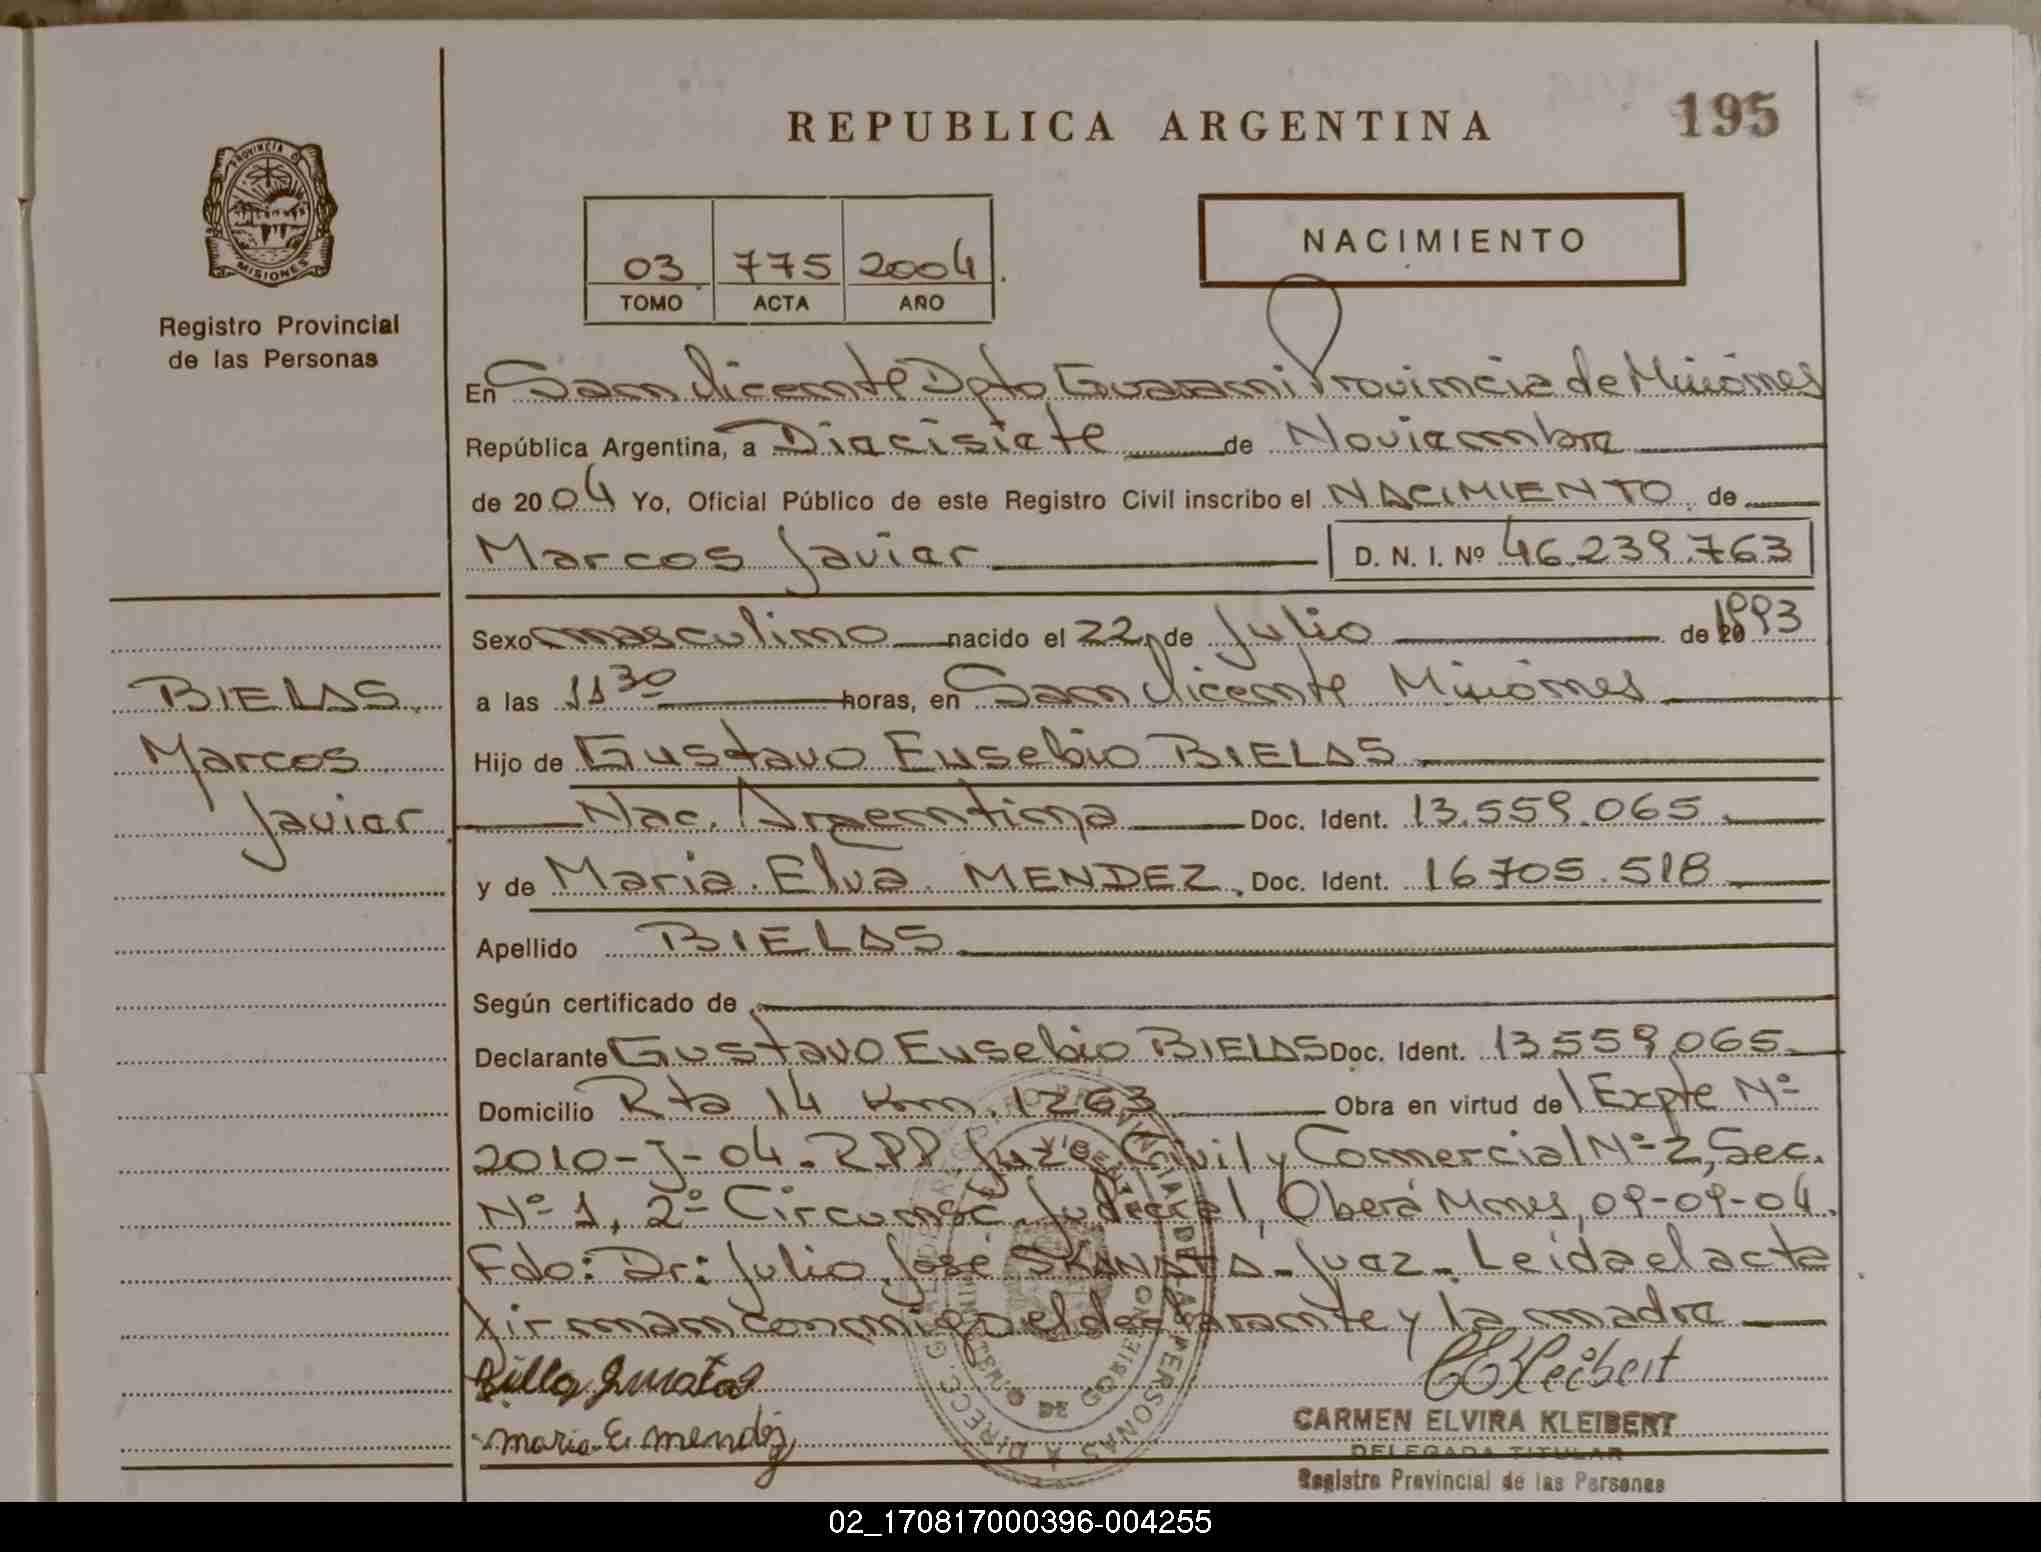 REPUBLICA ARGENTINA
195
PROVINCIA D
MISIONES
Registro Provincial
de las Personas
03 775 2004
TOMO ACTA AÑO
NACIMIENTO
En San Vicente Dpto Guarani Provincia de Misiones
República Argentina, a Diecisiete de Noviembre
de 2004 Yo, Oficial Público de este Registro Civil inscribo el NACIMIENTO de
Marcos Javier D. N. I. Nº 46.239.763
Sexo masculino nacido el 22, de Julio de 1993
BIELAS
Marcos
Javier
a las 11 30 horas, en San Vicente Misiones
Hijo de Gustavo Eusebio BIELAS
Nac. Argentina Doc. Ident. 13.559.065
y de Maria Elva MENDEZ, Doc. Ident. 16705.518
Apellido BIELAS
Según certificado de
Declarante Gustavo Eusebio BIELAS Doc. Ident. 13559065
Domicilio Rta 14 Km. 1263 Obra en virtud del Expte Nº
2010-J-04. RPP. Juzg. Civil y Comercial Nº 2, Sec.
Nº 1, 2º Circunsc. Judicial, Oberá Mnes, 09-09-04.
Fdo: Dr: Julio José SKANATA - Juez - Leida el acta
firman conmigo el declarante y la madre
maria E mendez
CEKleibert
CARMEN ELVIRA KLEIBERT
DELEGADA TITULAR
Registro Provincial de las Personas
02_170817000396-004255